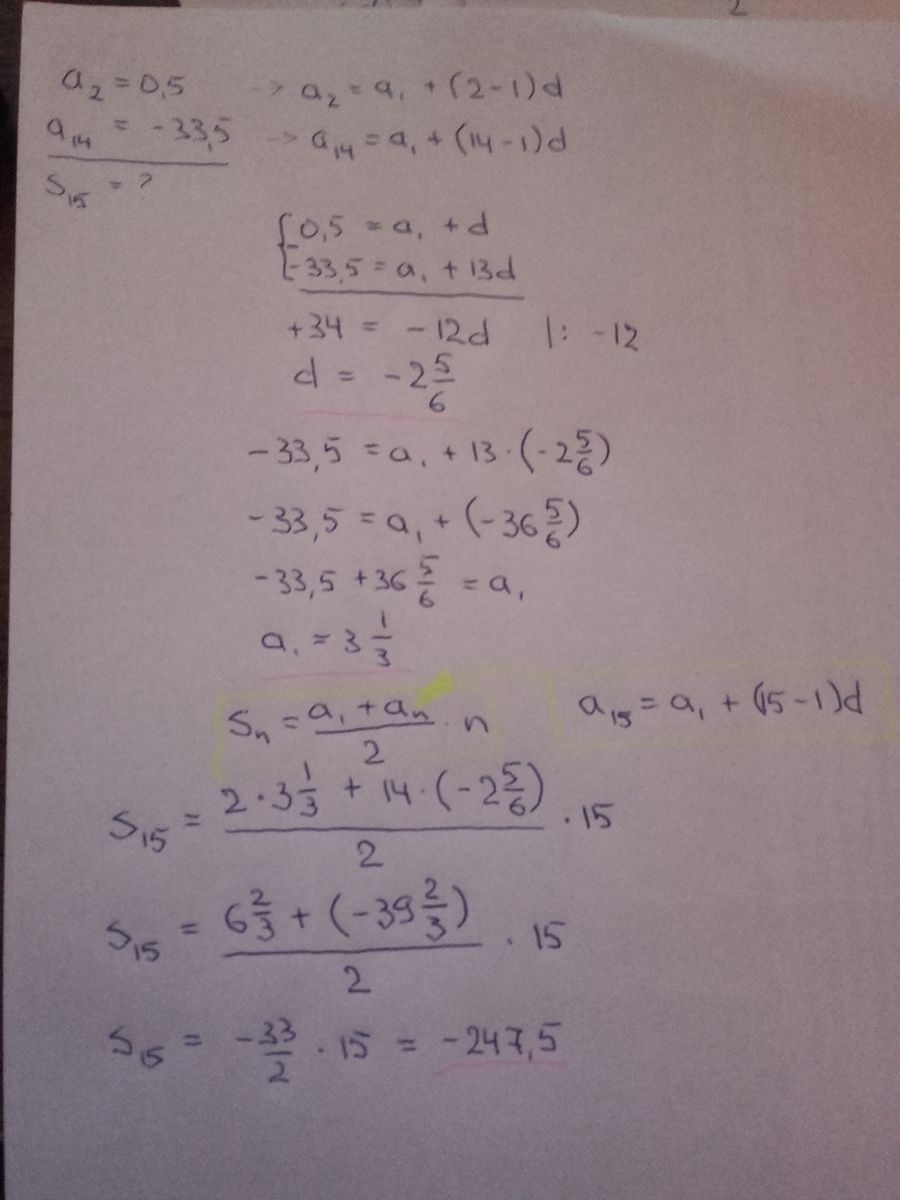 2
a₂ = 0,5 -> a₂ = a₁ + (2-1)d
a₁₄ = -33,5 -> a₁₄ = a₁ + (14-1)d
S₁₅ = ?
{0,5 = a₁ + d
-33,5 = a₁ + 13d
+34 = -12d |: -12
d = -2 5/6
-33,5 = a₁ + 13·(-2 5/6)
-33,5 = a₁ + (-36 5/6)
-33,5 + 36 5/6 = a₁
a₁ = 3 1/3
Sₙ = (a₁ + aₙ)/2 · n a₁₅ = a₁ + (15-1)d
S₁₅ = (2·3 1/3 + 14·(-2 5/6))/2 · 15
S₁₅ = (6 2/3 + (-39 2/3))/2 · 15
S₁₅ = -33/2 · 15 = -247,5